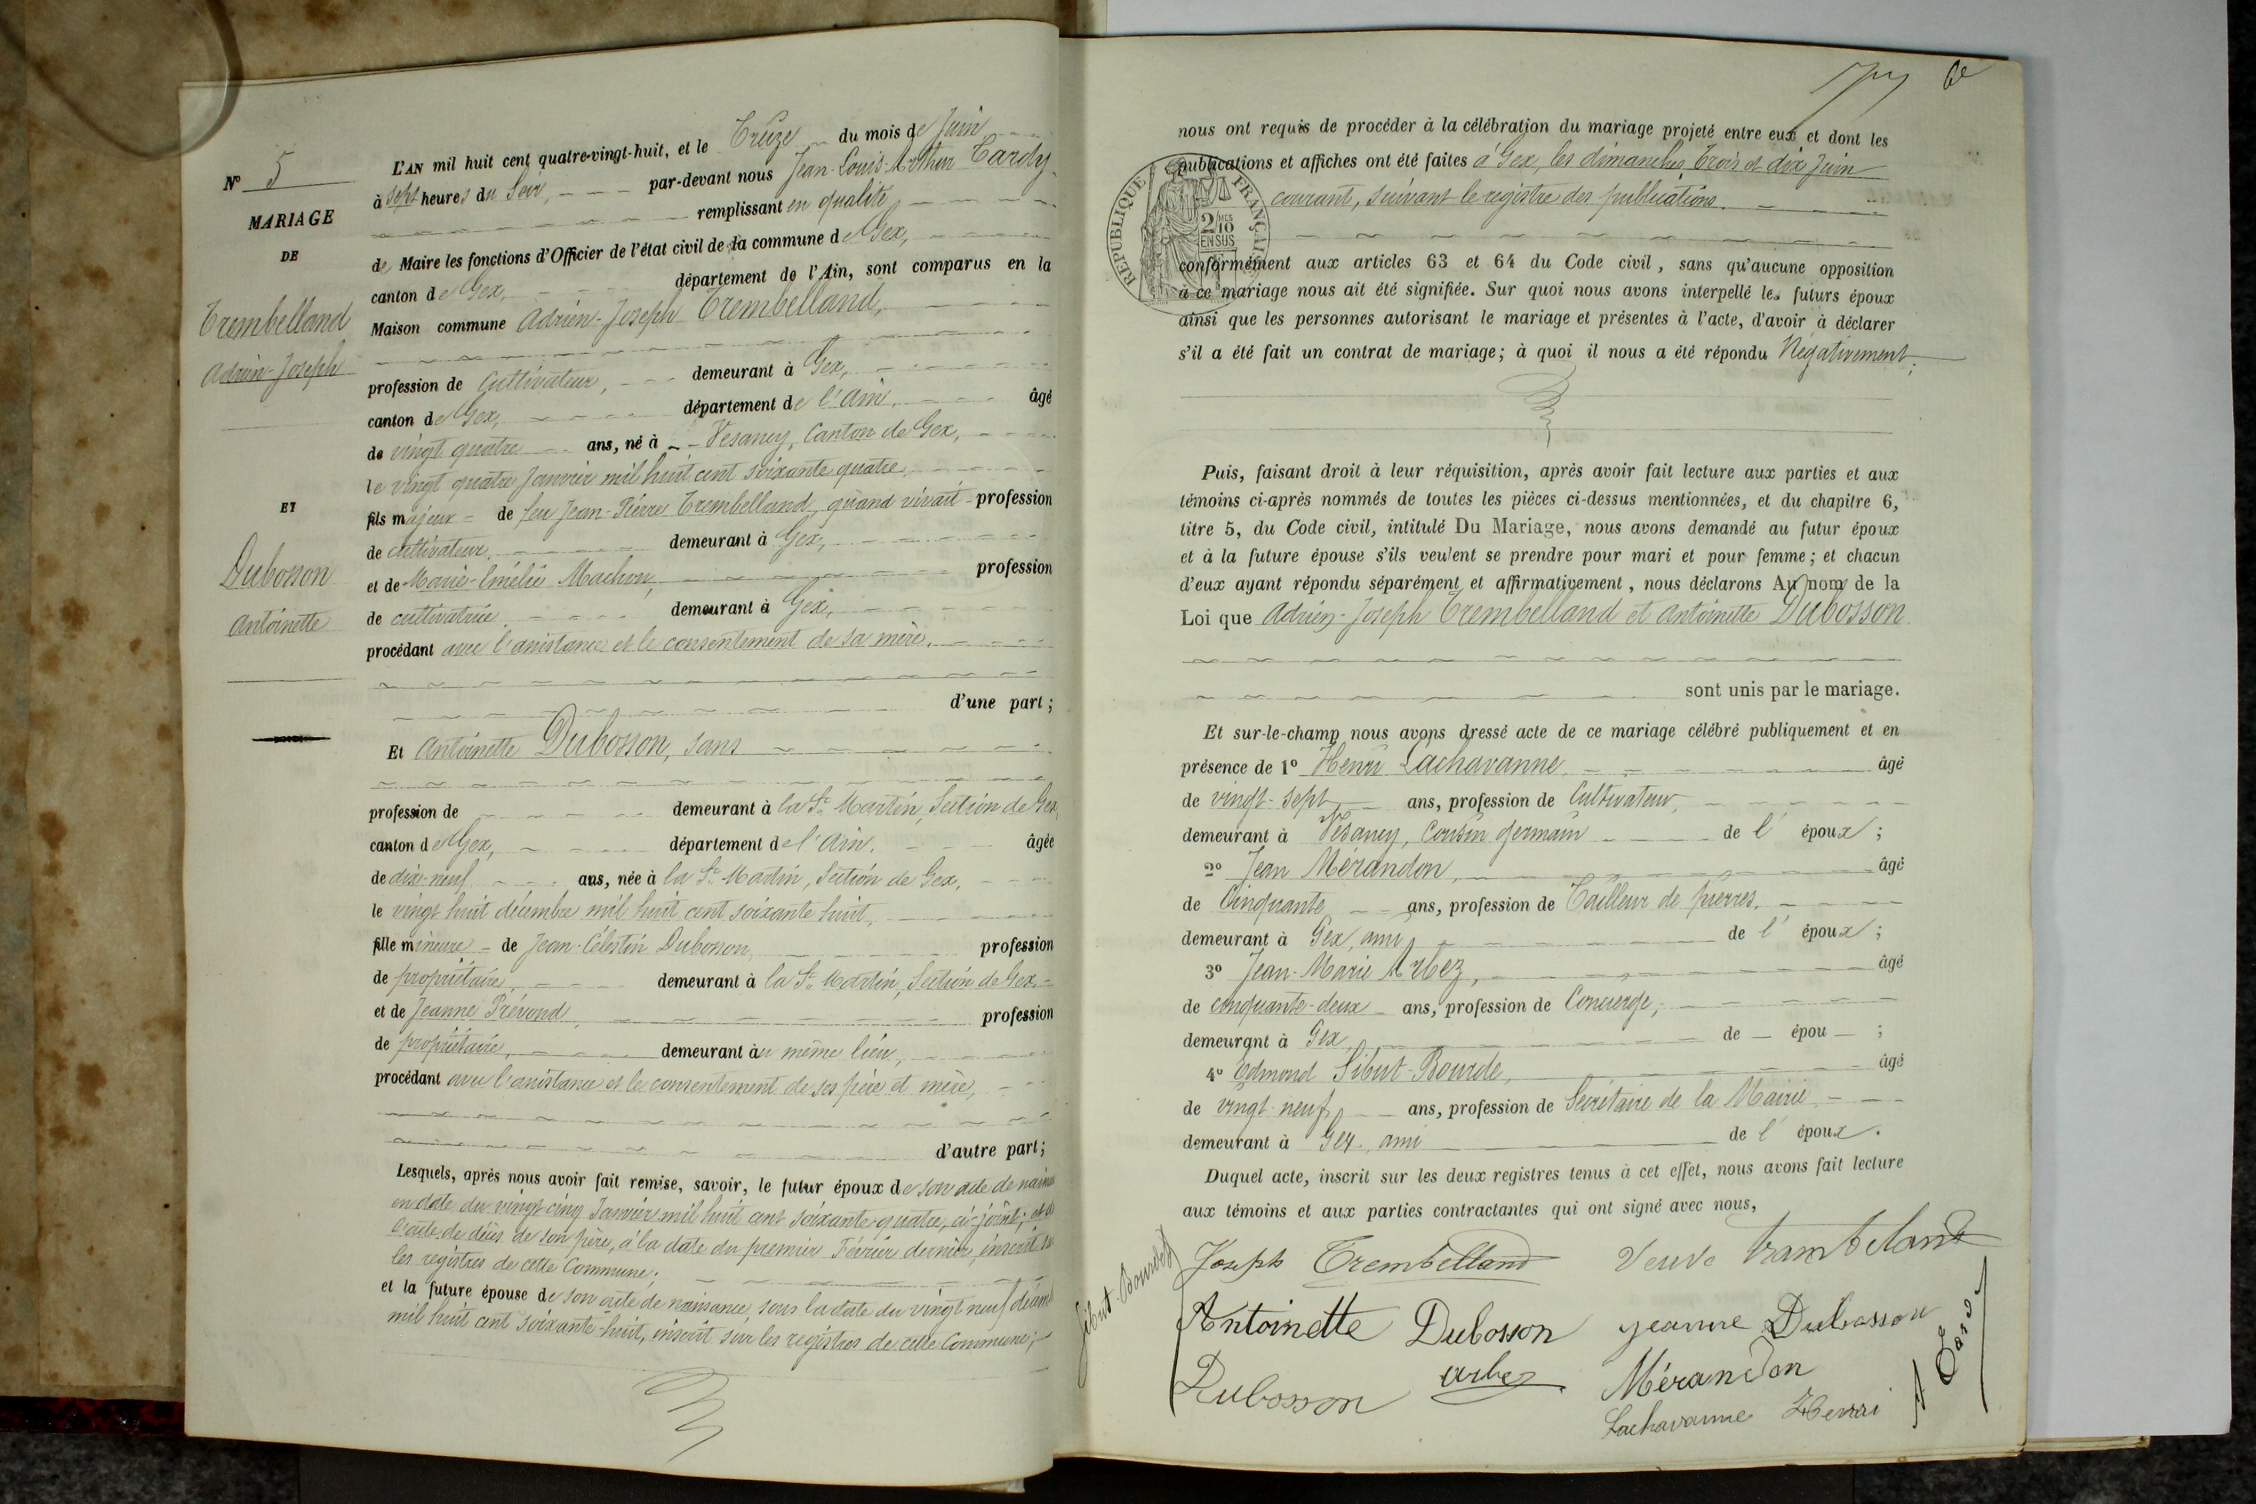 N° 5
MARIAGE
DE
Trembelland
Adrien-Joseph
ET
Dubosson
Antoinette
L'AN mil huit cent quatre-vingt-huit, et le Treize du mois de Juin
à sept heures du Soir, par-devant nous Jean-Louis-Arthur Tardy,
remplissant en qualité
de Maire les fonctions d'Officier de l'état civil de la commune de Gex,
canton de Gex, département de l'Ain, sont comparus en la
Maison commune Adrien-Joseph Trembelland,
profession de Cultivateur, demeurant à Gex,
canton de Gex, département de l'Ain, âgé
de vingt quatre ans, né à Vesancy, Canton de Gex,
le vingt quatre Janvier mil huit cent soixante quatre,
fils majeur de feu Jean-Pierre Trembelland, quand vivait profession
de cultivateur, demeurant à Gex,
et de Marie-Emélie Machon, profession
de cultivatrice, demeurant à Gex,
procédant avec l'assistance et le consentement de sa mère,
d'une part;
Et Antoinette Dubosson, sans
profession de demeurant à la St Martin, Section de Gex,
canton de Gex, département de l'Ain, âgée
de dix-neuf ans, née à la St Martin, Section de Gex,
le vingt huit décembre mil huit cent soixante huit,
fille mineure de Jean-Célestin Dubosson, profession
de propriétaire, demeurant à la St Martin, Section de Gex,
et de Jeanne Prévond, profession
de propriétaire, demeurant au même lieu,
procédant avec l'assistance et le consentement de ses père et mère,
d'autre part;
Lesquels, après nous avoir fait remise, savoir, le futur époux de son acte de
en date du vingt cinq Janvier mil huit cent soixante quatre, ci-joint; et de
l'acte de décès de son père, à la date du premier Février dernier, inscrit
les registres de cette Commune;
et la future épouse de son acte de naissance, sous la date du vingt neuf
mil huit cent soixante-huit, inscrit sur les registres de cette Commune;
nous ont requis de procéder à la célébration du mariage projeté entre eux et dont les
publications et affiches ont été faites à Gex, les dimanches trois et dix Juin
courant, suivant le registre des publications.
RÉPUBLIQUE FRANÇAISE
2/10
EN SUS
conformément aux articles 63 et 64 du Code civil, sans qu'aucune opposition
à ce mariage nous ait été signifiée. Sur quoi nous avons interpellé les futurs époux
ainsi que les personnes autorisant le mariage et présentes à l'acte, d'avoir à déclarer
s'il a été fait un contrat de mariage; à quoi il nous a été répondu Négativement;
Puis, faisant droit à leur réquisition, après avoir fait lecture aux parties et aux
témoins ci-après nommés de toutes les pièces ci-dessus mentionnées, et du chapitre 6,
titre 5, du Code civil, intitulé Du Mariage, nous avons demandé au futur époux
et à la future épouse s'ils veulent se prendre pour mari et pour femme; et chacun
d'eux ayant répondu séparément et affirmativement, nous déclarons Au nom de la
Loi que Adrien-Joseph Trembelland et Antoinette Dubosson
sont unis par le mariage.
Et sur-le-champ nous avons dressé acte de ce mariage célébré publiquement et en
présence de 1° Henri Lachavanne âgé
de vingt-sept ans, profession de Cultivateur,
demeurant à Vesancy, cousin germain de l'époux;
2° Jean Mérandon, âgé
de Cinquante ans, profession de Tailleur de pierres,
demeurant à Gex, ami de l'époux;
3° Jean-Marie Arbez, âgé
de cinquante-deux ans, profession de Concierge,
demeurant à Gex, de épou ;
4° Edmond Sibut-Bourde, âgé
de vingt neuf ans, profession de Secrétaire de la Mairie
demeurant à Gex, ami de l'époux.
Duquel acte, inscrit sur les deux registres tenus à cet effet, nous avons fait lecture
aux témoins et aux parties contractantes qui ont signé avec nous,
Joseph Trembelland Veuve Trambeland
Antoinette Dubosson Jeanne Dubosson
Dubosson Arbez Mérandon
Lachavanne Henri